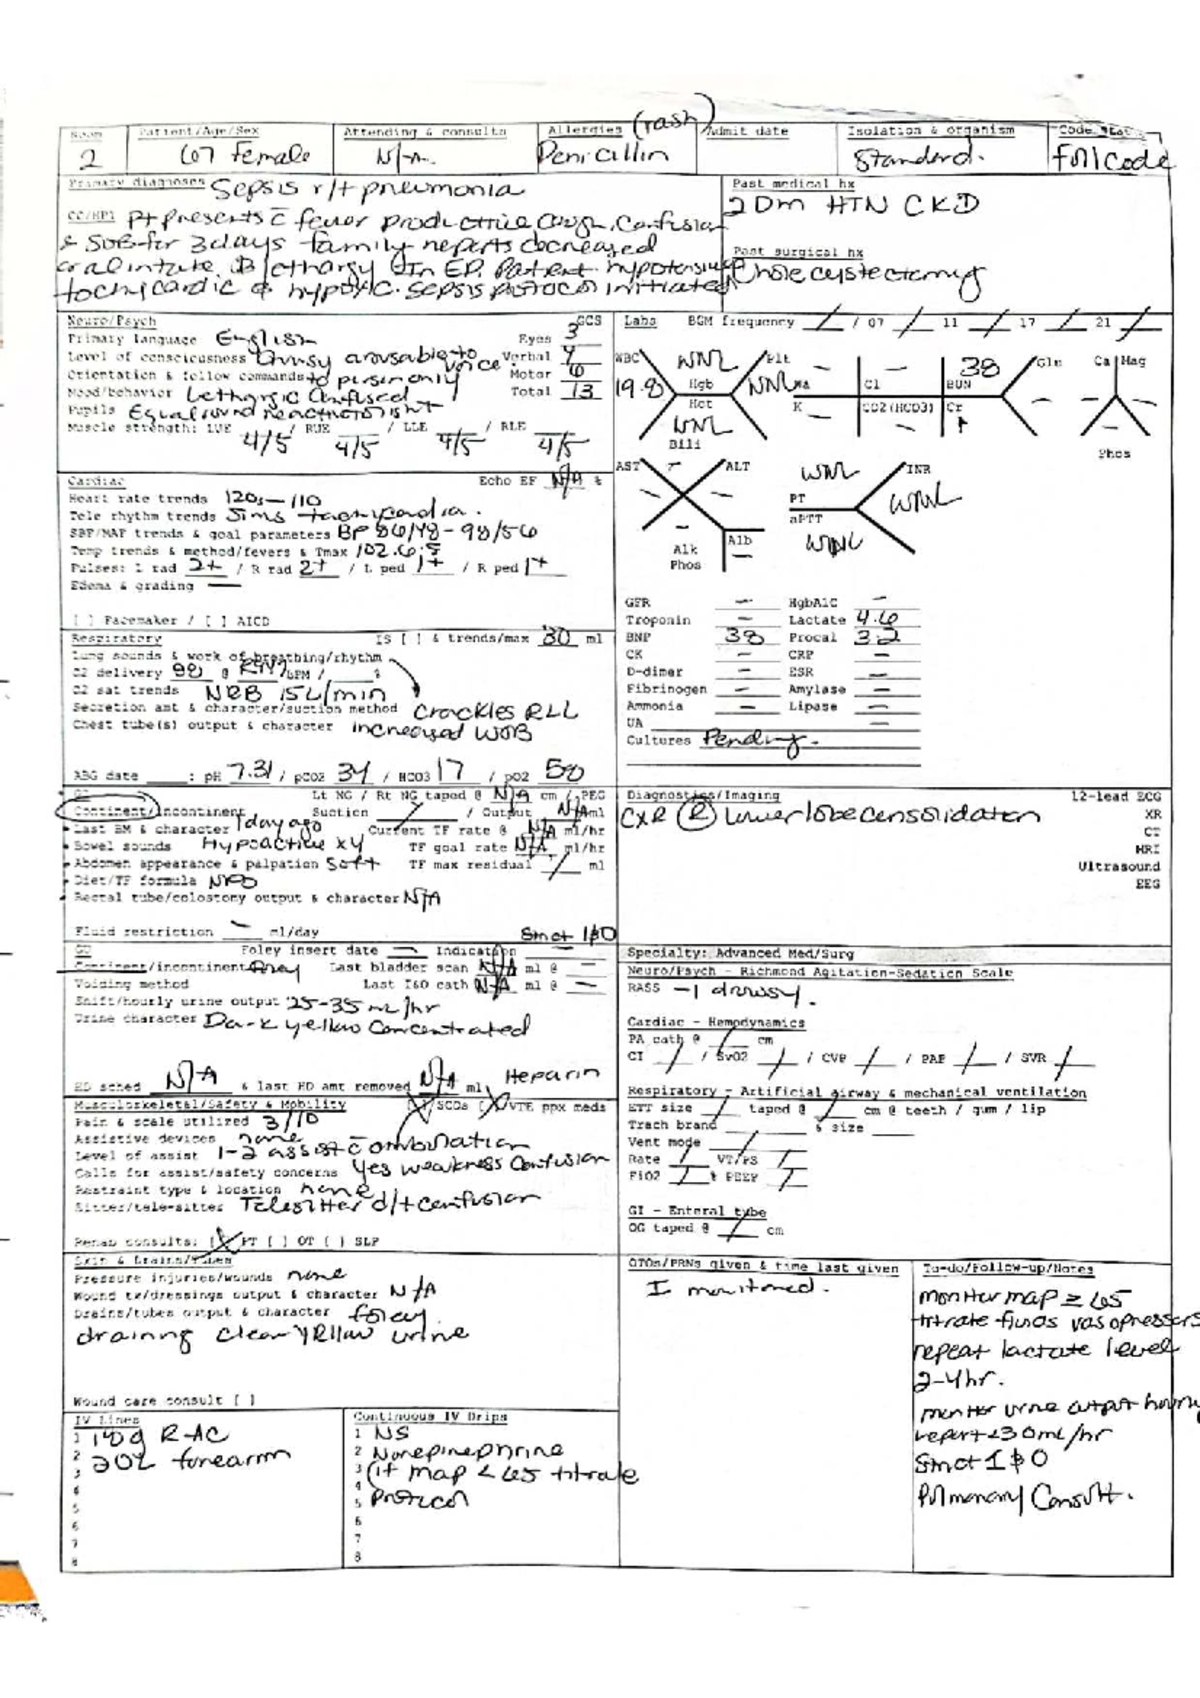 Room Patient/Age/Sex Attending & consults Allergies (rash) Admit date Isolation & organism Code Stat
2 67 Female N/A. Penicillin Standard. Full Code
Primary diagnoses Sepsis r/t pneumonia
CC/HPI Pt presents c fever productive cough, confusion
& SOB for 3 days family reports decreased
oral intake. lethargy In ED. Patient hypotensive
tachycardic & hypoxic. sepsis protocol initiated
Past medical hx
2 Dm HTN CKD
Past surgical hx
Cholecystectomy
Neuro/Psych GCS
Primary language English Eyes 3
Level of consciousness Drowsy arousable to voice Verbal 4
Orientation & follow commands to person only Motor 6
Mood/behavior Lethargic Confused Total 13
Pupils Equal round reactive to light
Muscle strength: LUE 4/5 / RUE 4/5 / LLE 4/5 / RLE 4/5
Labs BGM frequency / 07 11 17 21
WBC WNL Plt 38 Glu Ca Mag
19.8 Hgb WNL Na Cl BUN
Hct K CO2(HCO3) Cr
WNL Phos
Bili
AST ALT WNL INR
PT WNL
aPTT
Alb WNL
Alk
Phos
Cardiac Echo EF N/A %
Heart rate trends 120s-110
Tele rhythm trends Sinus tachycardia.
SBP/MAP trends & goal parameters BP 86/48 - 98/56
Temp trends & method/fevers & Tmax 102.6
Pulses: L rad 2+ / R rad 2+ / L ped 1+ / R ped 1+
Edema & grading —
[ ] Pacemaker / [ ] AICD
GFR — HgbA1C —
Troponin — Lactate 4.6
BNP 38 Procal 3.2
CK — CRP —
D-dimer — ESR —
Fibrinogen — Amylase —
Ammonia — Lipase —
UA —
Cultures Pending.
Respiratory IS [ ] & trends/max 30 ml
Lung sounds & work of breathing/rhythm
O2 delivery LPM / %
O2 sat trends NRB 15L/min
Secretion amt & character/suction method Crackles RLL
Chest tube(s) output & character increased WOB
ABG date : pH 7.31 / pCO2 34 / HCO3 17 / pO2 58
GI Lt NG / Rt NG taped @ N/A cm / PEG
Continent/incontinent Suction / Output N/A ml
Last BM & character 1 day ago Current TF rate @ N/A ml/hr
Bowel sounds Hypoactive x4 TF goal rate N/A ml/hr
Abdomen appearance & palpation Soft TF max residual ml
Diet/TF formula NPO
Rectal tube/colostomy output & character N/A
Fluid restriction — ml/day Strict I&O
Diagnostics/Imaging 12-lead ECG
CXR (R) Lower lobe consolidation XR
CT
MRI
Ultrasound
EEG
GU Foley insert date — Indication —
Continent/incontinent Last bladder scan N/A ml @ —
Voiding method Last I&O cath N/A ml @ —
Shift/hourly urine output 25-35 mL/hr
Urine character Dark yellow concentrated
HD sched N/A & last HD amt removed N/A ml Heparin
Specialty: Advanced Med/Surg
Neuro/Psych - Richmond Agitation-Sedation Scale
RASS -1 drowsy.
Cardiac - Hemodynamics
PA cath @ cm
CI / SvO2 / CVP / PAP / SVR
Respiratory - Artificial airway & mechanical ventilation
ETT size taped @ cm @ teeth / gum / lip
Trach brand & size
Vent mode
Rate VT/PS
FiO2 % PEEP
GI - Enteral tube
OG taped @ cm
Musculoskeletal/Safety & Mobility [X] SCDs [X] VTE ppx meds
Pain & scale utilized 3/10
Assistive devices none
Level of assist 1-2 assist c ambulation
Calls for assist/safety concerns yes weakness confusion
Restraint type & location none
Sitter/tele-sitter Telesitter d/t confusion
Rehab consults: [X] PT [ ] OT [ ] SLP
Skin & Drains/Tubes
Pressure injuries/wounds none
Wound tx/dressings output & character N/A
Drains/tubes output & character foley.
draining clear yellow urine
Wound care consult [ ]
OTOs/PRNs given & time last given
I monitored.
To-do/Follow-up/Notes
monitor map ≥ 65
titrate fluids vasopressers
repeat lactate level
2-4hr.
monitor urine output hourly
report <30mL/hr
Strict I&O
Pulmonary Consult.
IV Lines
1 18g RAC
2 20g forearm
3
4
5
6
7
8
Continuous IV Drips
1 NS
2 Norepinephrine
3 (if map < 65 titrate
4
5 protocol
6
7
8